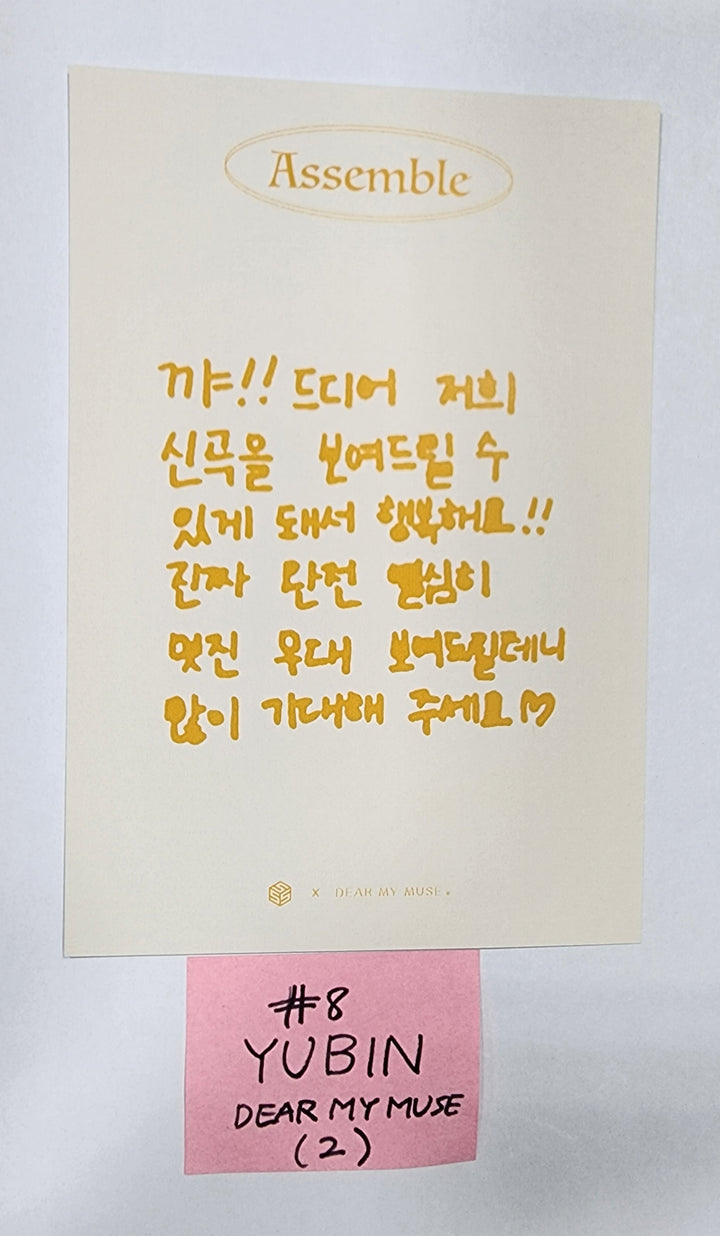 Assemble
꺄!! 드디어 저희
신곡을 보여드릴 수
있게 돼서 행복해요!!
진짜 완전 열심히
멋진 무대 보여드릴테니
많이 기대해 주세요♡
X DEAR MY MUSE.
#8
YUBIN
DEAR MY MUSE
(2)